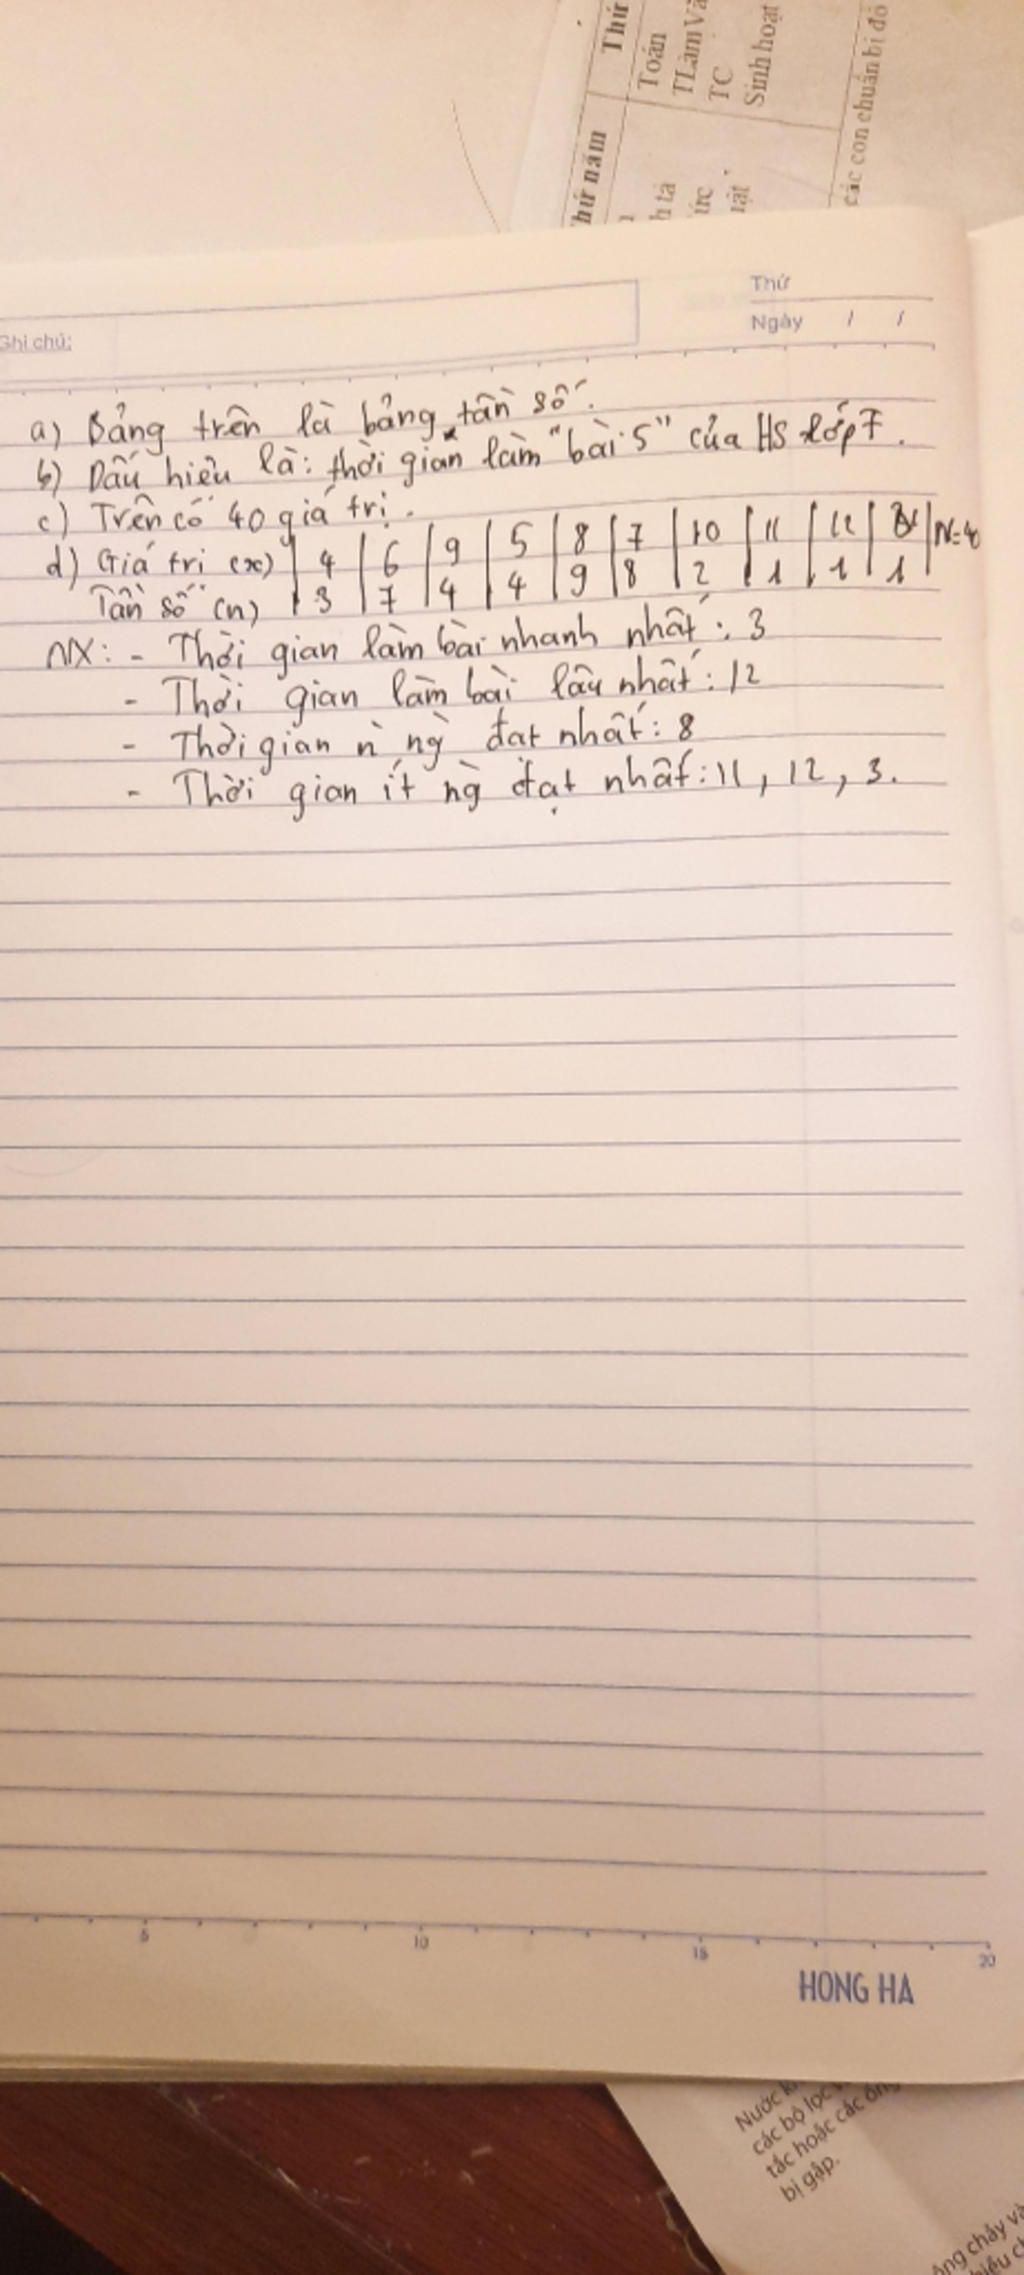 Thứ
Toán
TLàm Vă
TC
Sinh hoạt
hứ năm
h tả
ức
uật
các con chuẩn bị đồ
Thứ
Ngày / /
Ghi chú:
a) Bảng trên là bảng tần số.
b) Dấu hiệu là: thời gian làm "bài 5" của HS lớp 7.
c) Trên có 40 giá trị.
d) Giá trị (x) | 4 | 6 | 9 | 5 | 8 | 7 | 10 | 11 | 12 | | N=40
Tần số (n) | 3 | 7 | 4 | 4 | 9 | 8 | 2 | 1 | 1 | 1
NX: - Thời gian làm bài nhanh nhất: 3
- Thời gian làm bài lâu nhất: 12
- Thời gian n` ng` đạt nhất: 8
- Thời gian ít ng` đạt nhất: 11, 12, 3.
5 10 15 20
HONG HA
Nước
các bộ lọc
tắc hoặc các ống
bị gập.
ông chảy và